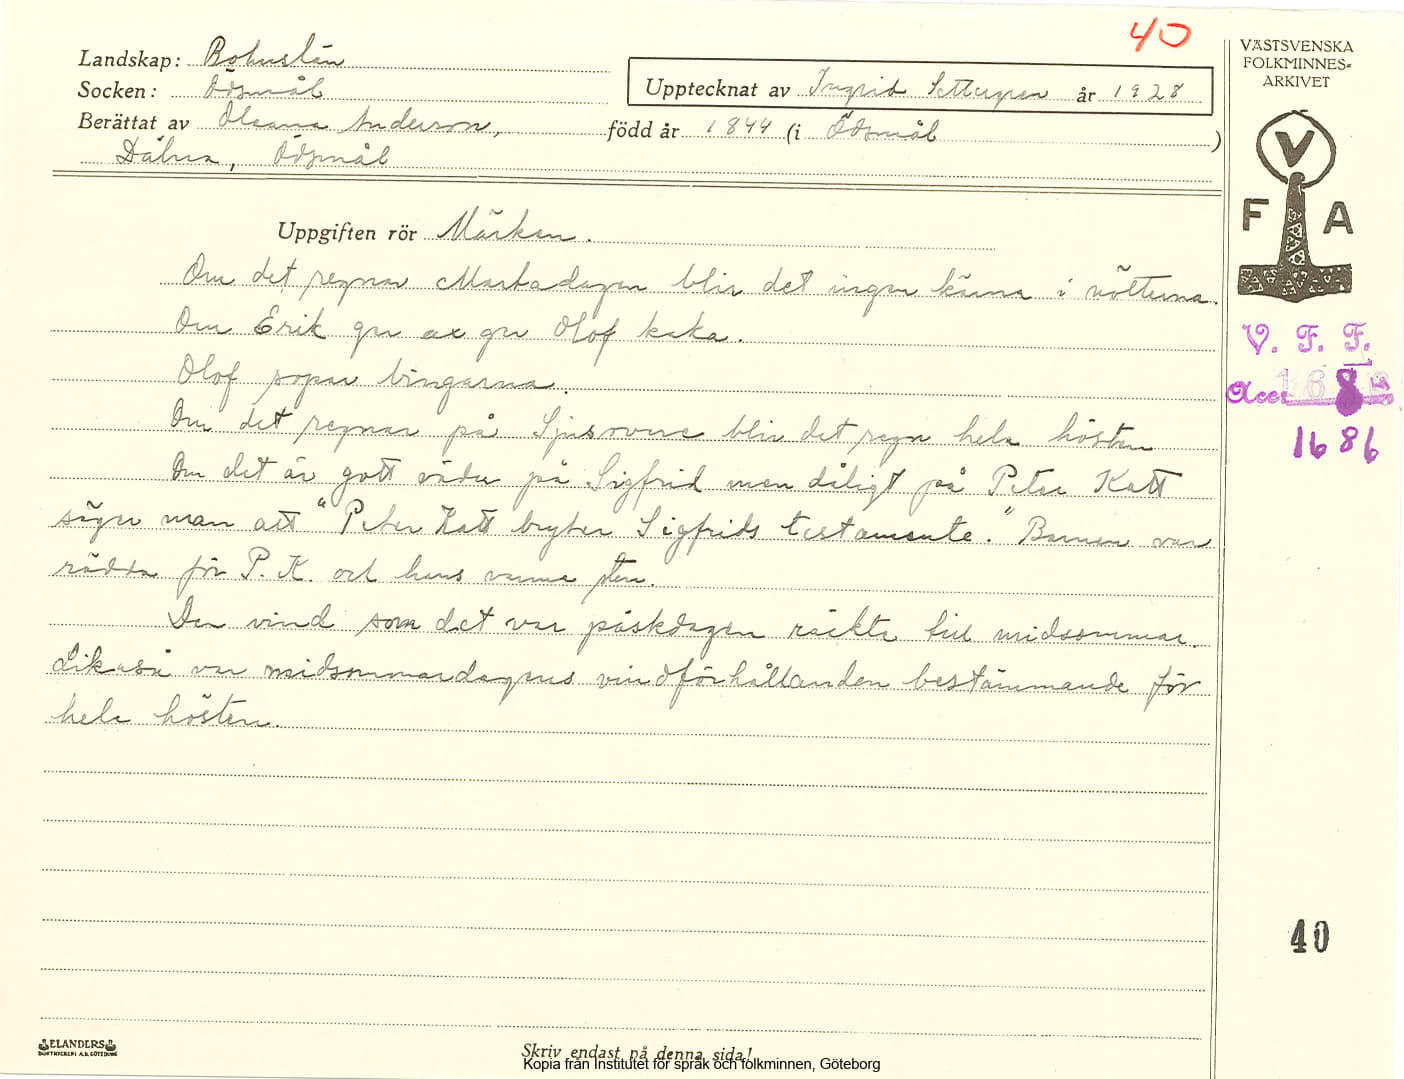 40
Landskap: Bohuslän
Socken: Ödsmål
Upptecknat av Ingrid år 1928
Berättat av Oleana Anderson, född år 1844 (i Ödsmål)
Ödsmål
VÄSTSVENSKA
FOLKMINNES-
ARKIVET
V
F A
Uppgiften rör Märken.
Om det regnar Martadagen blir det ingen kärna i nötterna.
Om Erik ger ax ger Olof kaka.
Olof sopar bingarna.
Om det regnar på Sjusovare blir det regn hela hösten
Om det är gott väder på Sigfrid men dåligt på Peter Katt
säger man att "Peter Katt bryter Sigfrids testamente." Barnen var
rädda för P. K. och hans varma sten.
Den vind som det var påskdagen räckte till midsommar.
Likaså var midsommardagens vindförhållanden bestämmande för
hela hösten.
V. F. F.
Acc.
1686
40
ELANDERS
BOKTRYCKERI A.B. GÖTEBORG
Skriv endast på denna sida!
Kopia från Institutet för språk och folkminnen, Göteborg